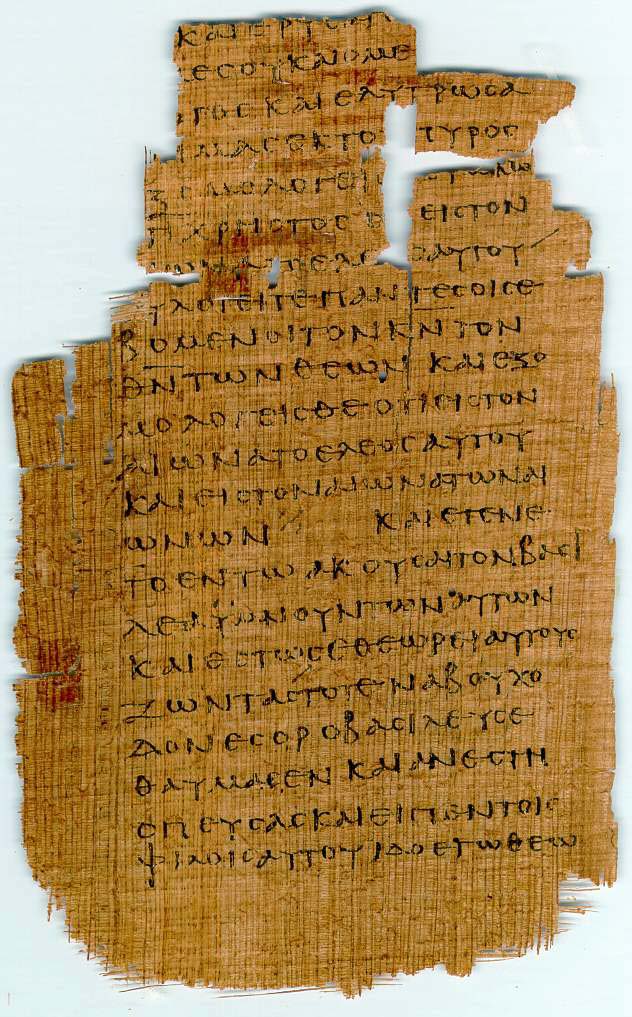 ΚΑΙΕΡΥΣΑΤ
ΕΣΟΥΚΑΙΟΜΕ
ΓΟΣΚΑΙΕΛΥΤΡΩΣΑ
ΜΑΣΕΚΤΟ ΠΥΡΟΣ
ΞΟΜΟΛΟΓΕΙ ΤΩΚΩ
ΧΡΗΣΤΟΣΟ ΕΙΣΤΟΝ
ΕΛΕ ΑΥΤΟΥ
ΥΛΟΓΕΙΤΕΠΑΝΤΕΣΟΙΣΕ
ΒΟΜΕΝΟΙΤΟΝΚ̅Ν̅ΤΟΝ
Θ̅Ν̅ΤΩΝΘΕΩΝ ΚΑΙΕΞΟ
ΜΟΛΟΓΕΙΣΘΕΟΤΙΕΙΣΤΟΝ
ΑΙΩΝΑΤΟΕΛΕΟΣΑΥΤΟΥ
ΚΑΙΕΙΣΤΟΝΑΙΩΝΑΤΩΝΑΙ
ΩΝΩΝ ΚΑΙΕΓΕΝΕ
ΤΟΕΝΤΩΑΚΟΥΣΑΙΤΟΝΒΑΣΙ
ΛΕΑΥΜΝΟΥΝΤΩΝΑΥΤΩΝ
ΚΑΙΕΣΤΩΣΕΘΕΩΡΕΙΑΥΤΟΥΣ
ΖΩΝΤΑΣΤΟΤΕΝΑΒΟΥΧΟ
ΔΟΝΕΣΟΡΟΒΑΣΙΛΕΥΣΕ
ΘΑΥΜΑΣΕΝΚΑΙΑΝΕΣΤΗ
ΣΠΕΥΣΑΣΚΑΙΕΙΠΕΝΤΟΙΣ
ΦΙΛΟΙΣΑΥΤΟΥΙΔΟΕΓΩΘΕΩ